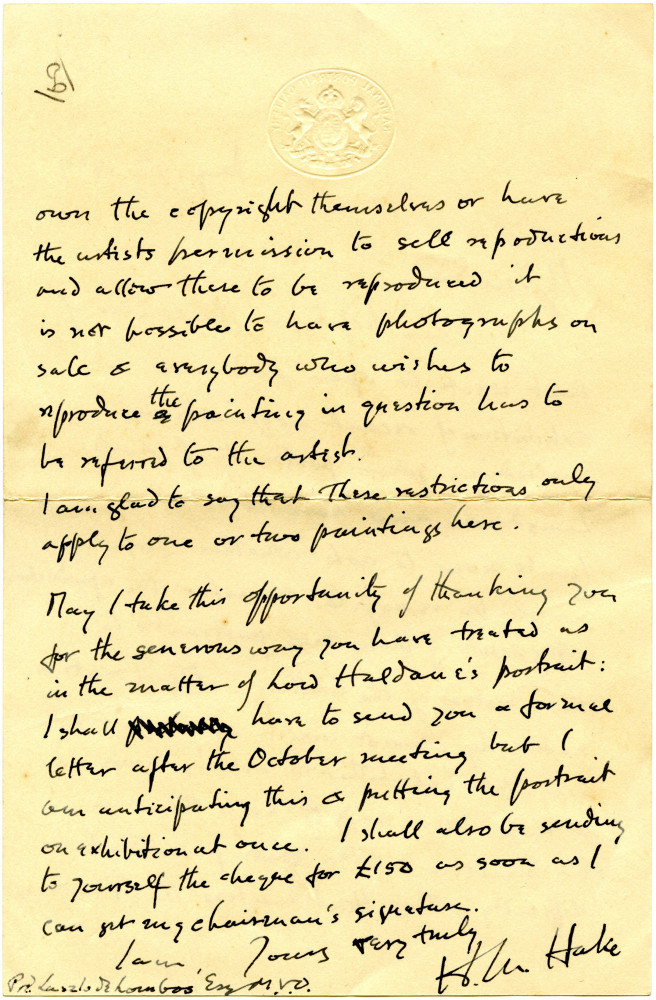 own the copyright themselves or have
the artists permission to sell reproductions
and allow these to be reproduced it
is not possible to have photographs on
sale & everybody who wishes to
reproduce the painting in question has to
be referred to the artist.
I am glad to say that these restrictions only
apply to one or two paintings here.
May I take this opportunity of thanking you
for the generous way you have treated us
in the matter of Lord Haldane's portrait:
I shall have to send you a formal
letter after the October meeting but I
am anticipating this & putting the portrait
on exhibition at once. I shall also be sending
to yourself the cheque for £150 as soon as I
can get my chairman's signature.
I am, Yours very truly
H. M. Hake
P. A. Laszlo de Lombos, Esq M.V.O.